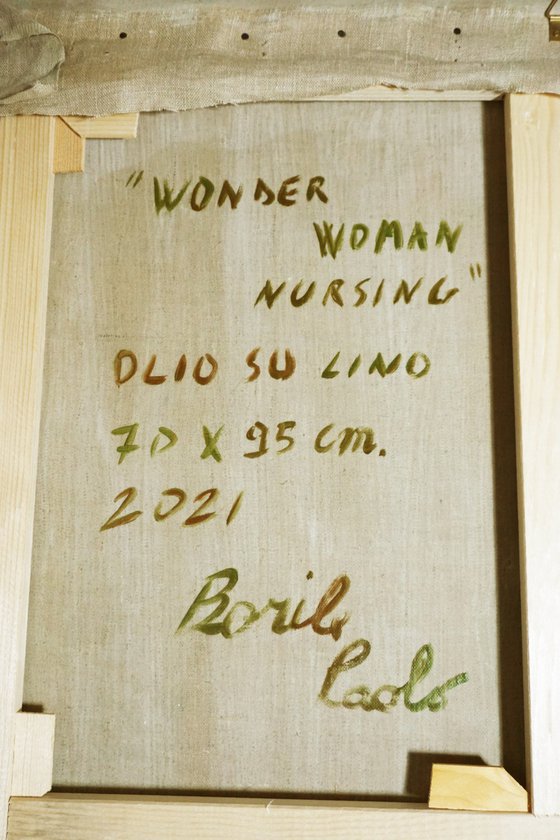 "WONDER
WOMAN
NURSING"
OLIO SU LINO
70 X 95 cm.
2021
Borile
Paolo